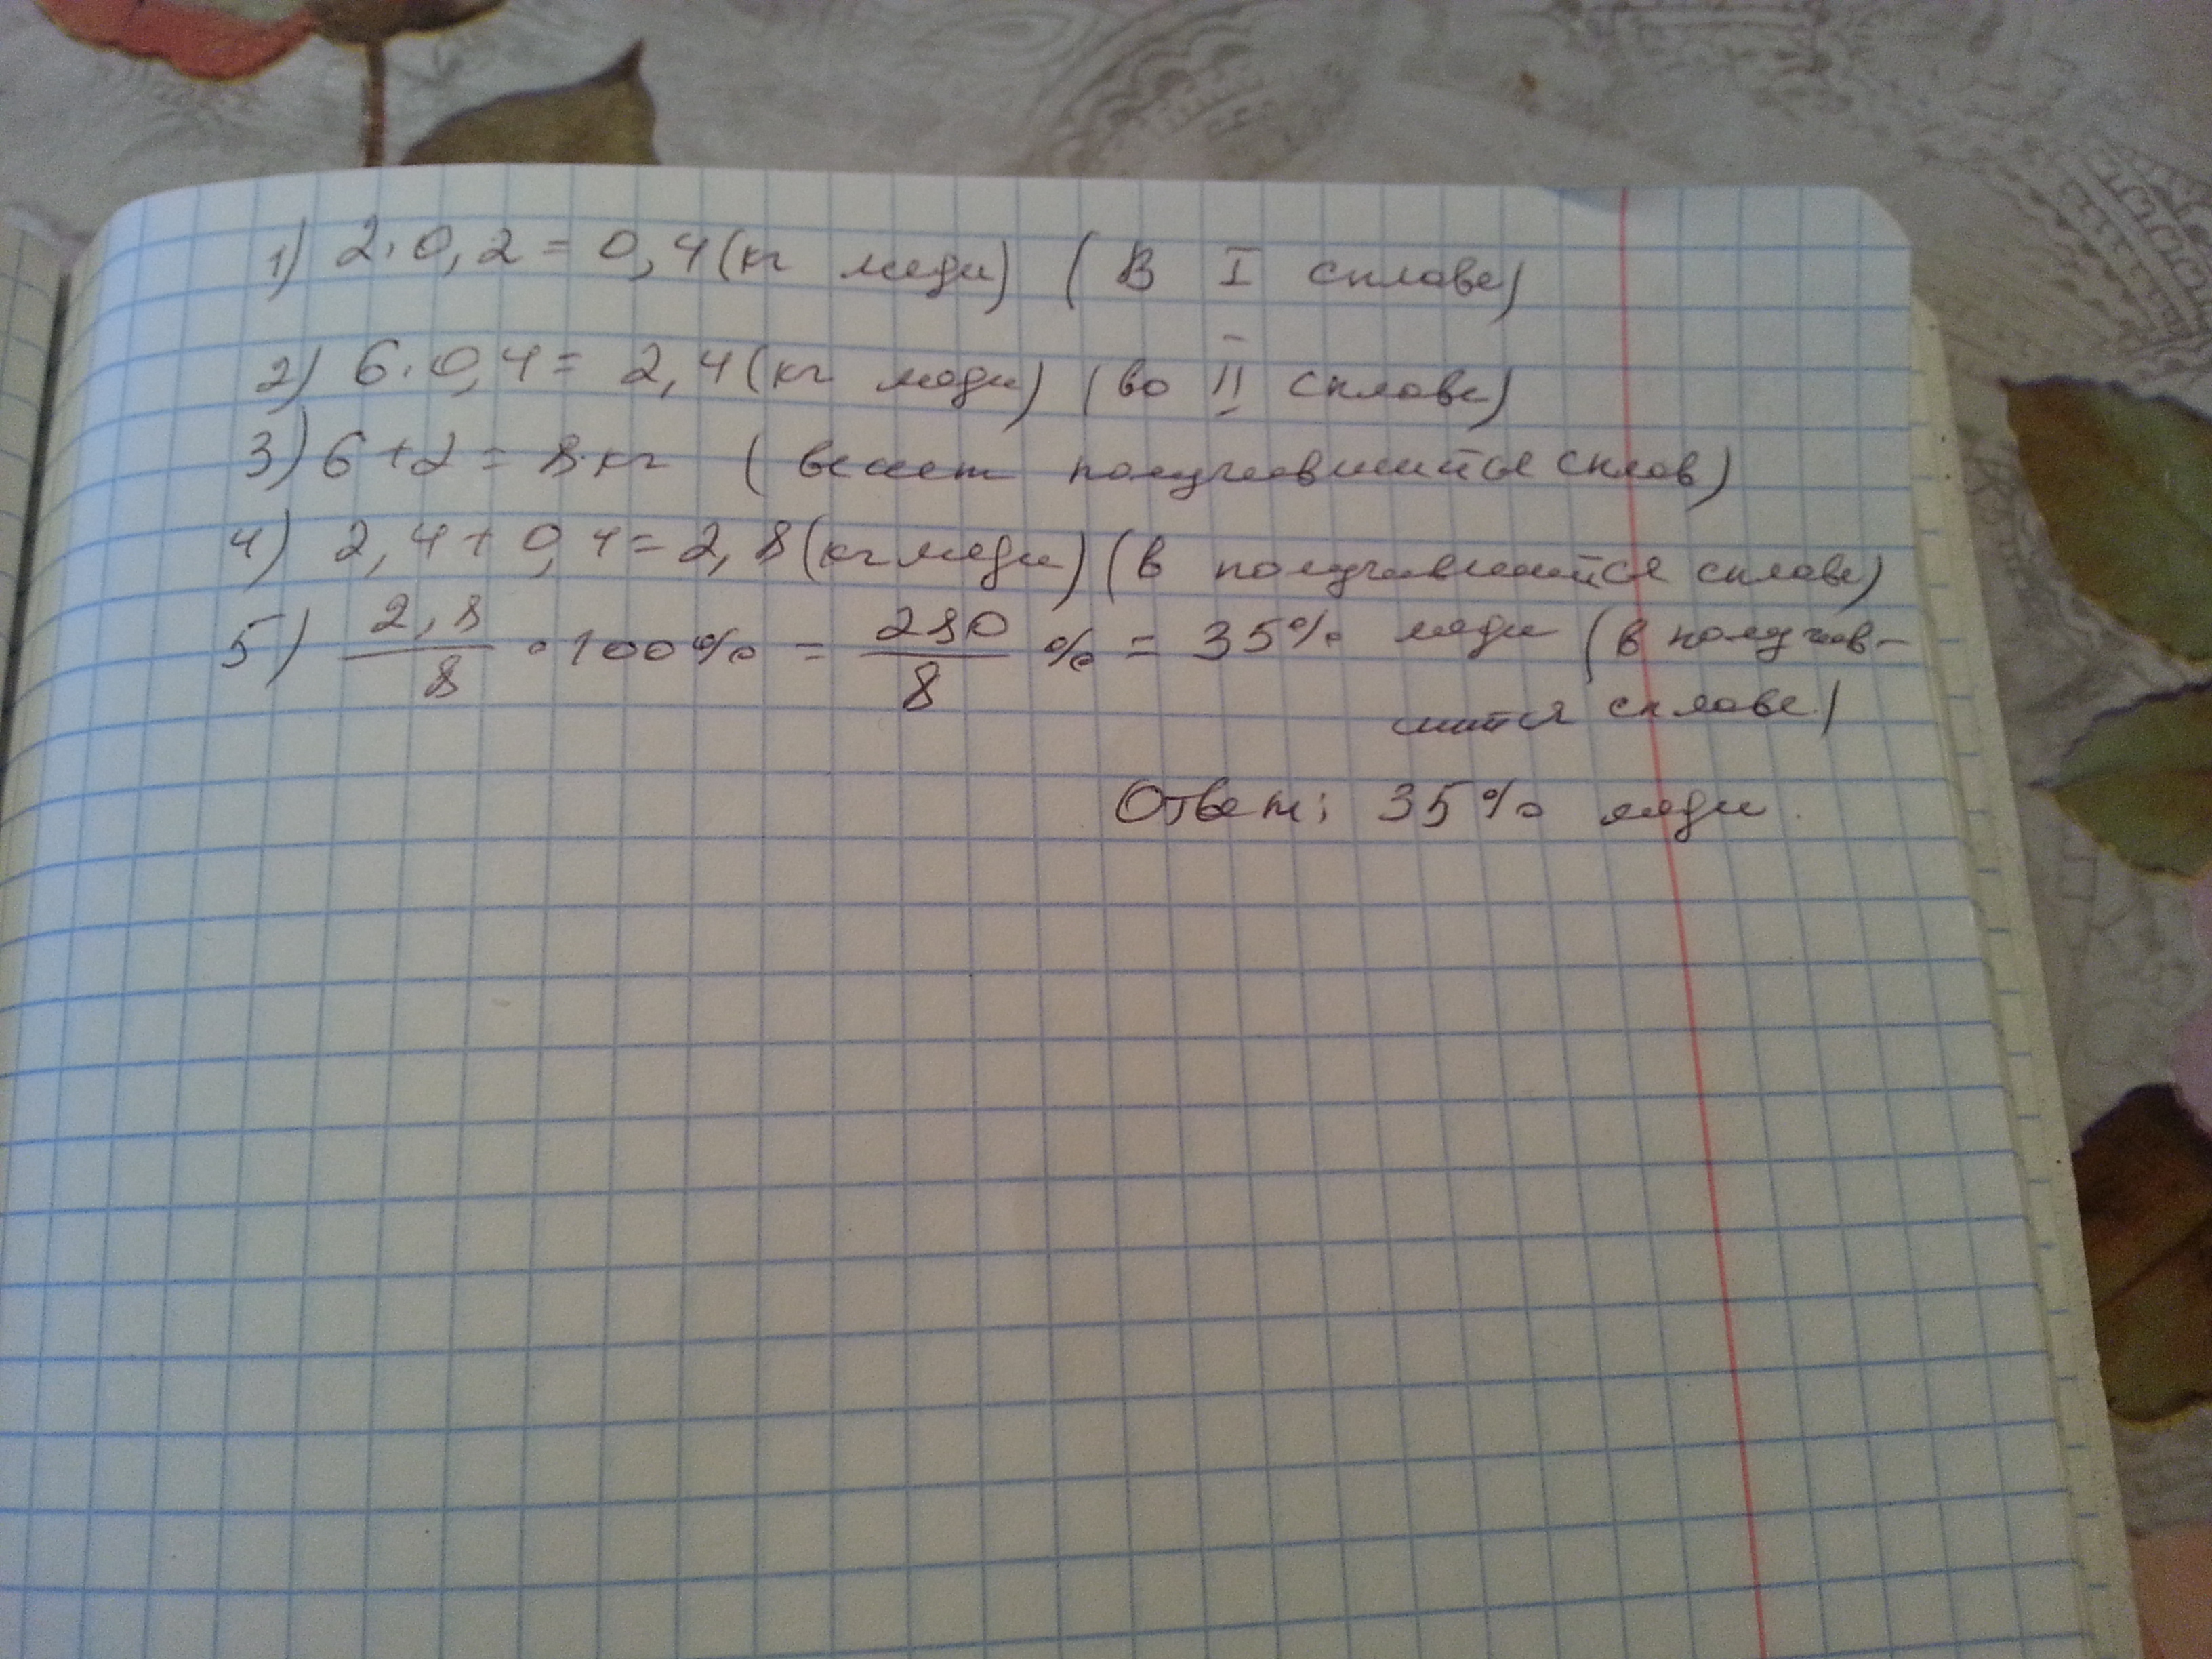 1) 2·0,2 = 0,4 (кг меди) (В I сплаве)
2) 6·0,4 = 2,4 (кг меди) (во II сплаве)
3) 6+2 = 8 кг (весит получившийся сплав)
4) 2,4 + 0,4 = 2,8 (кг меди) (в получившийся сплаве)
5) 2,8/8 · 100% = 280/8 % = 35% меди (в получив-
шийся сплаве)
Ответ: 35% меди.